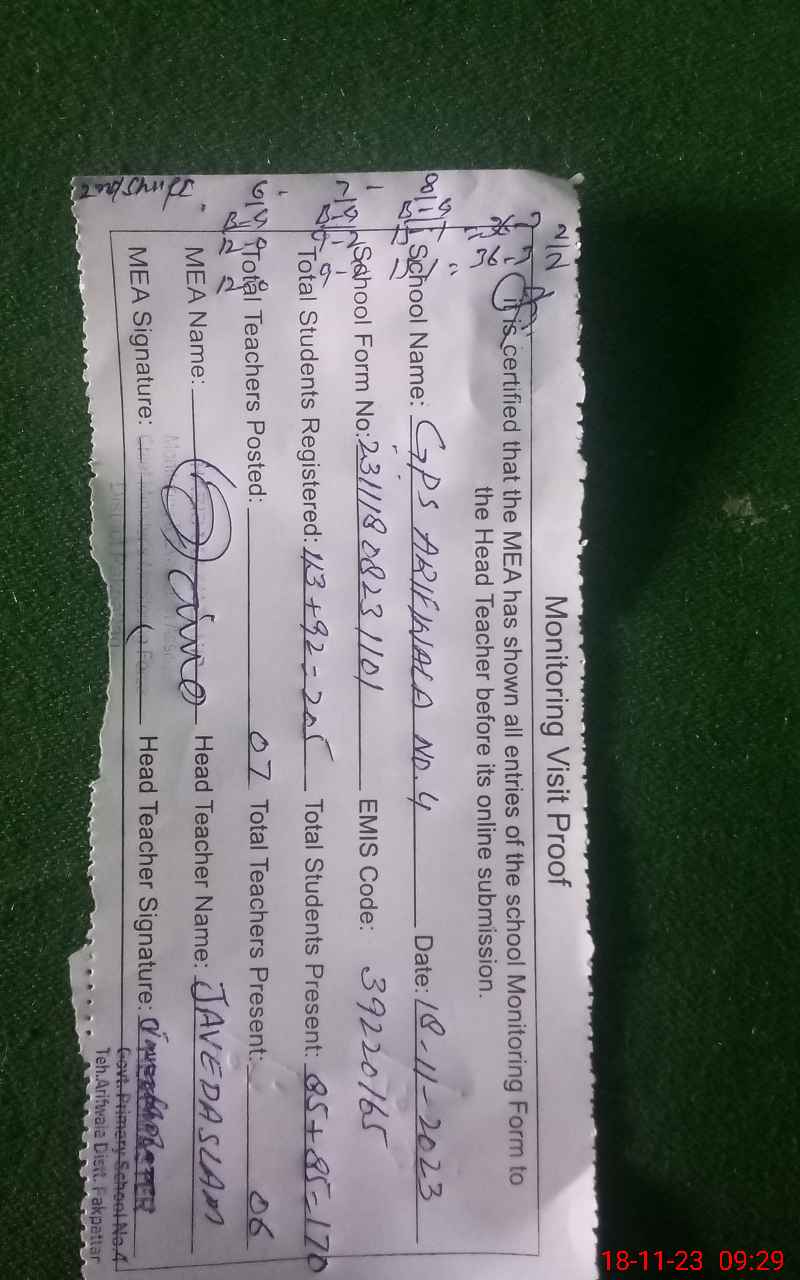 Monitoring Visit Proof
it is certified that the MEA has shown all entries of the school Monitoring Form to
the Head Teacher before its online submission.
School Name: GPS ARIFWALA NO.4 Date: 18-11-2023
School Form No: 231118 08231101 EMIS Code: 39220165
Total Students Registered: 113+92=205 Total Students Present: 85+85-170
Total Teachers Posted: 07 Total Teachers Present: 06
MEA Name: Head Teacher Name: JAVED ASLAM
MEA Signature: Head Teacher Signature:
Govt. Primary School No.4
Teh.Arifwala Distt. Pakpattan
18-11-23 09:29